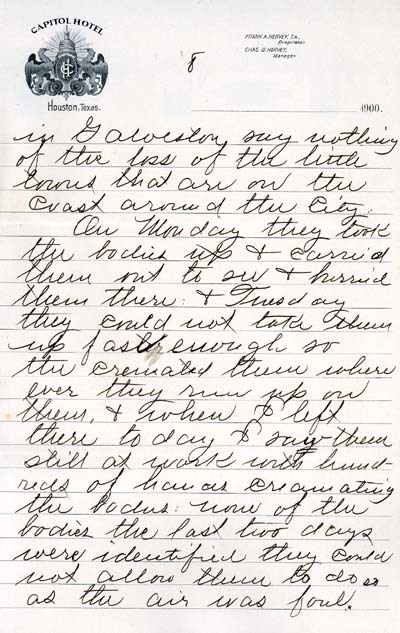 CAPITOL HOTEL
Houston, Texas.
FRANK A. HERVEY, SR.,
Proprietor.
CHAS. D. HERVEY,
Manager.
8
1900.
in Galveston, say nothing
of the loss of the little
towns that are on the
coast around the city.
On Monday they took
the bodies up & carried
them out to see & burried
them there: & Tuesday
they could not take them
up fast enough so
the cremated them where
ever they run up on
them, & when I left
there to day I saw them
still at work with hund-
reds of hands creamating
the bodies: none of the
bodies the last two days
were identified they could
not allow them to do so
as the air was foul.